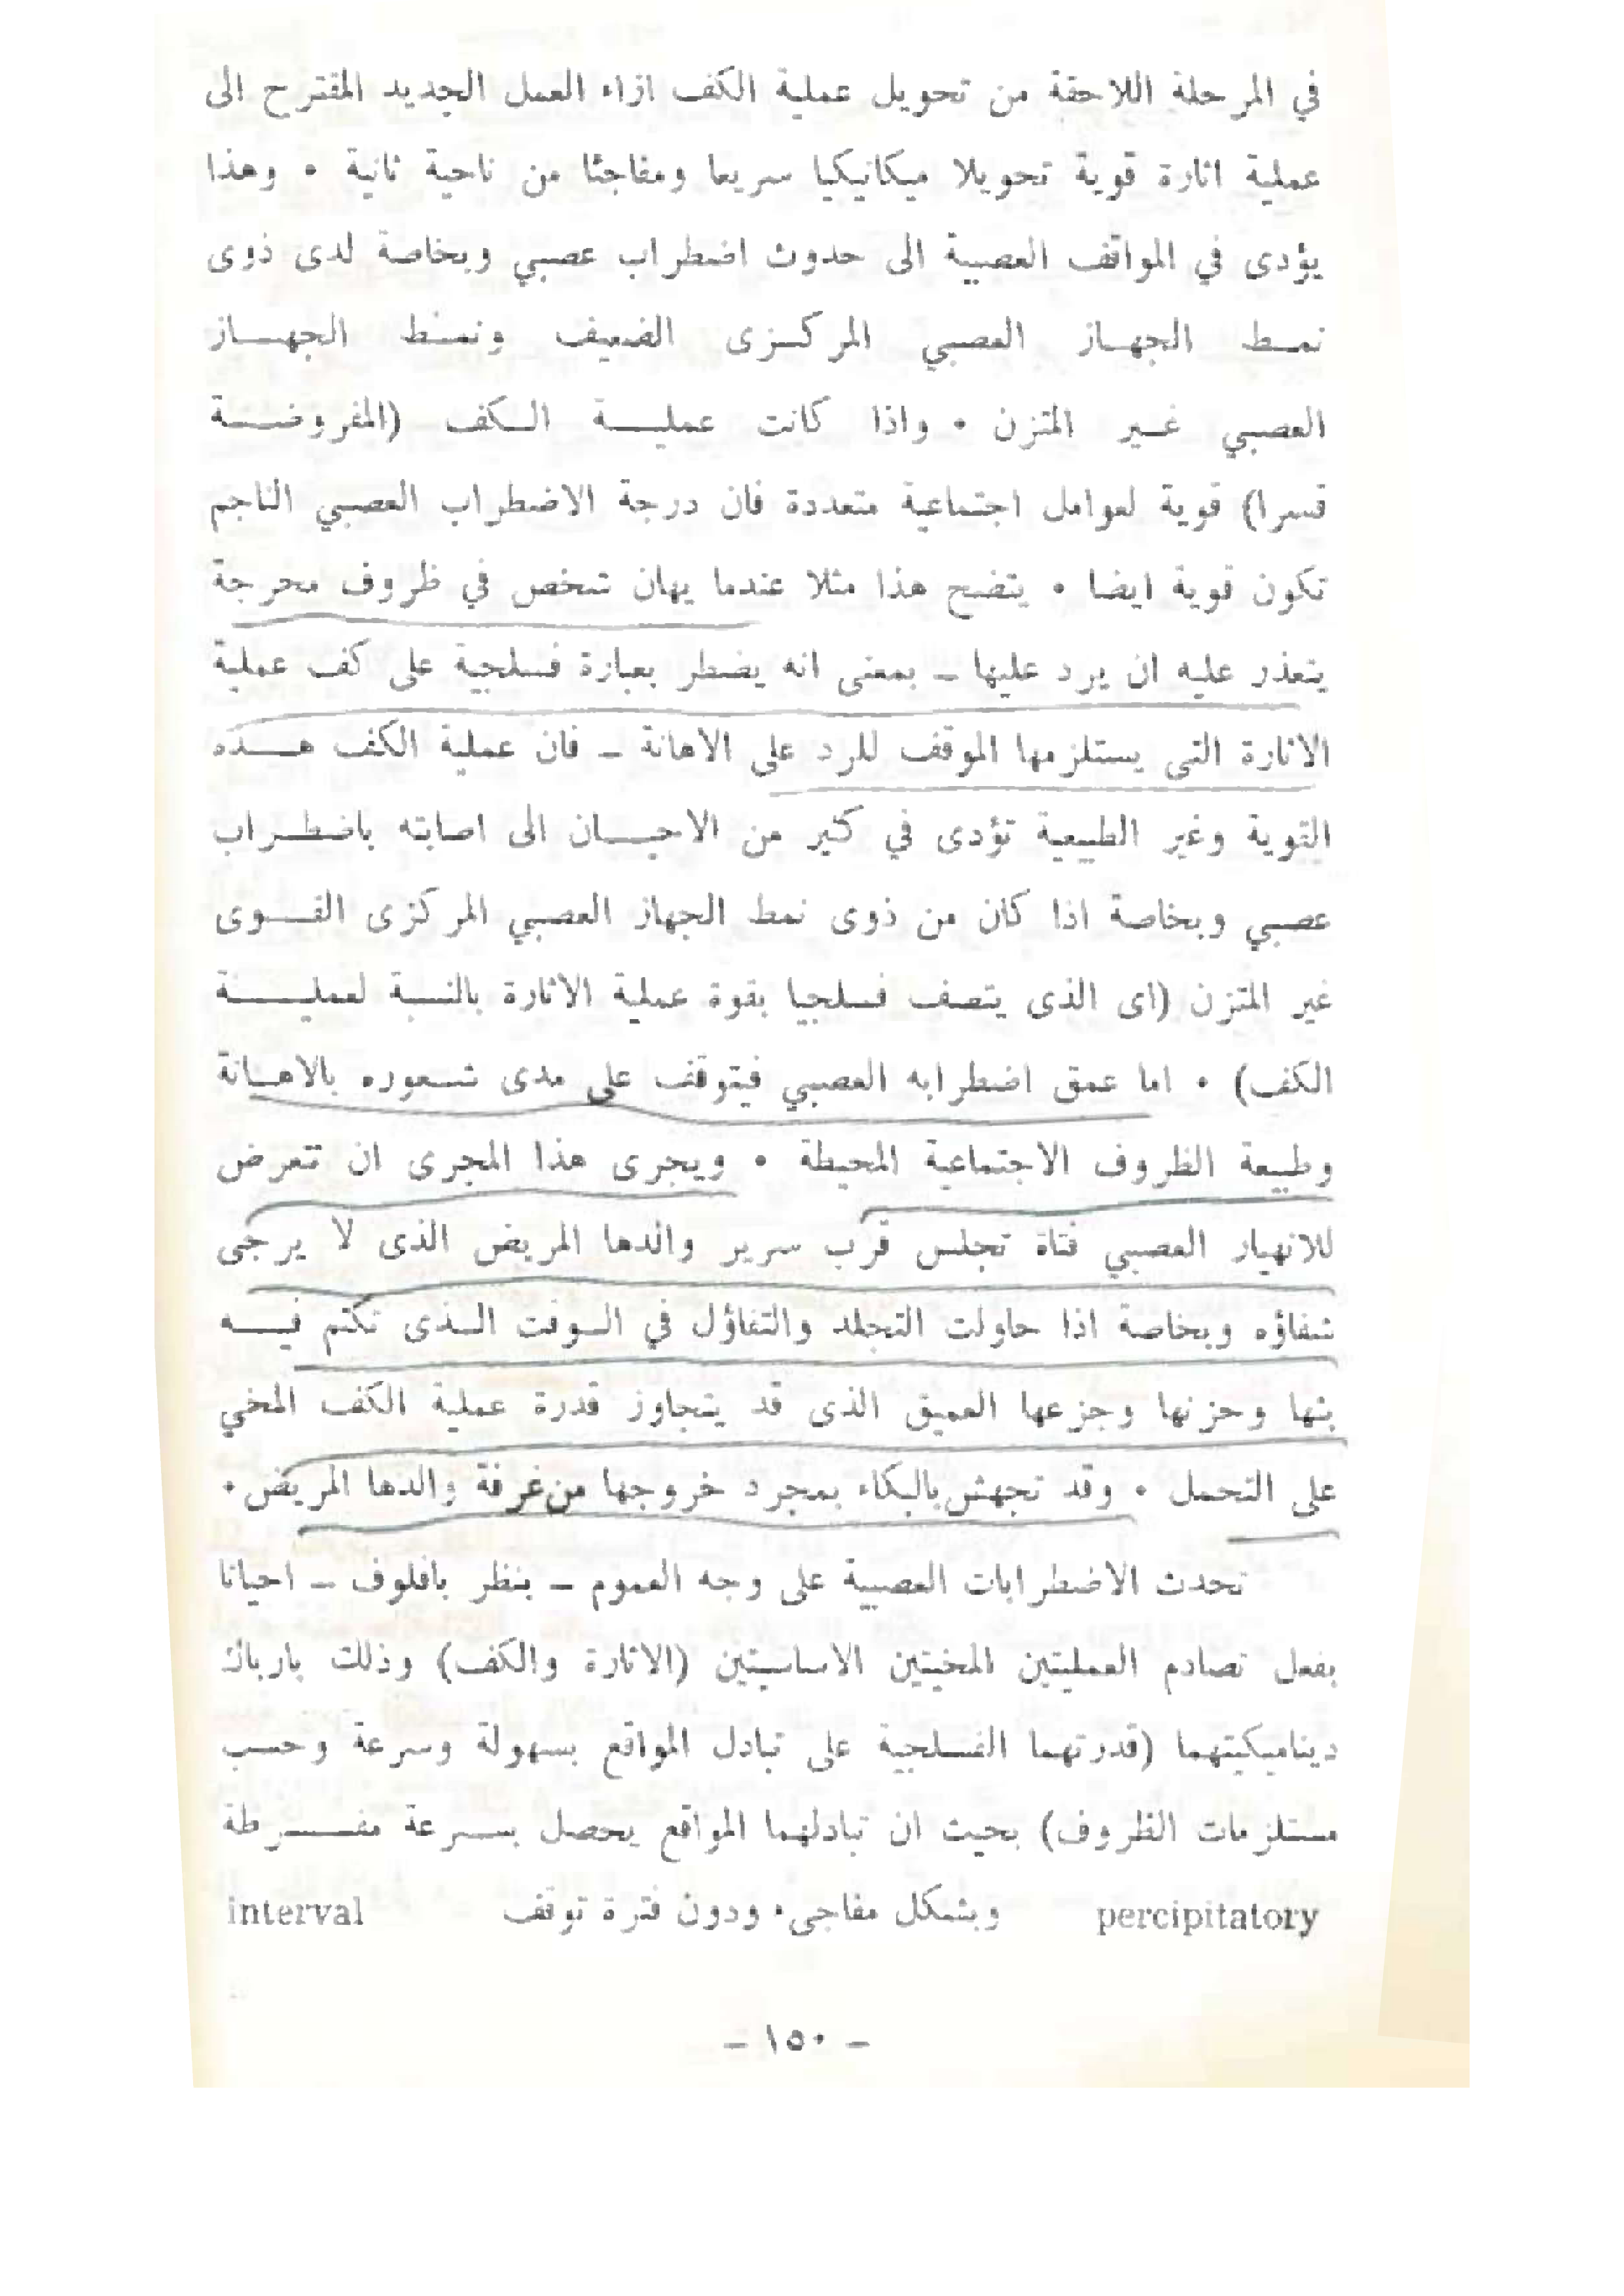 في المرحلة اللاحقة من تحويل عملية الكف ازاء العمل الجديد المقترح الى
عملية اثارة قوية تحويلا ميكانيكيا سريعا ومفاجئا من ناحية ثانية • وهذا
يؤدى في المواقف العصبية الى حدوث اضطراب عصبي وبخاصة لدى ذوى
نمـط الجهـاز العصبي المركـزى الضعيف ونمـط الجهـــاز
العصبي غـير المتزن • واذا كانت عمليـــة الـكف (المفروضـــة
قسرا) قوية لعوامل اجتماعية متعددة فان درجة الاضطراب العصبي الناجم
تكون قوية ايضا • يتضح هذا مثلا عندما يهان شخص في ظروف محرجة
يتعذر عليه ان يرد عليها – بمعنى انه يضطر بعبارة فسلجية على كف عملية
الاثارة التى يستلزمها الموقف للرد على الاهانة – فان عملية الكف هـــذه
القوية وغير الطبيعية تؤدى في كثير من الاحيـــان الى اصابته باضطـراب
عصبي وبخاصة اذا كان من ذوى نمط الجهاز العصبي المركزى القـــوى
غير المتزن (اى الذى يتصف فسلجيا بقوة عملية الاثارة بالنسبة لعمليـــة
الكف) • اما عمق اضطرابه العصبي فيتوقف على مدى شـعوره بالاهـانة
وطبيعة الظروف الاجتماعية المحيطة • ويجرى هذا المجرى ان تتعرض
للانهيار العصبي فتاة تجلس قرب سرير والدها المريض الذى لا يرجى
شفاؤه وبخاصة اذا حاولت التجلد والتفاؤل في الـوقت الـذى تكتم فيـــه
بثها وحزنها وجزعها العميق الذى قد يتجاوز قدرة عملية الكف المخي
على التحمل • وقد تجهش بالبكاء بمجرد خروجها من غرفة والدها المريض •
تحدث الاضطرابات العصبية على وجه العموم – بنظر بافلوف – احيانا
بفعل تصادم العمليتين المخيتين الاساسيتين (الاثارة والكف) وذلك بارباك
ديناميكيتهما (قدرتهما الفسلجية على تبادل المواقع بسهولة وسرعة وحسب
مستلزمات الظروف) بحيث ان تبادلهما المواقع يحصل بسـرعة مفــرطة
percipitatory وبشكل مفاجىء ودون فترة توقف interval
– ١٥٠ –